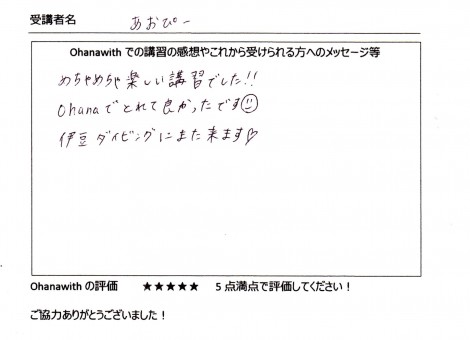 受講者名 あおぴー
Ohanawith での講習の感想やこれから受けられる方へのメッセージ等
めちゃめちゃ楽しい講習でした!!
Ohanaでとれて良かったです☺
伊豆ダイビングにまた来ます♡
Ohanawith の評価 ★★★★★ 5 点満点で評価してください！
ご協力ありがとうございました！